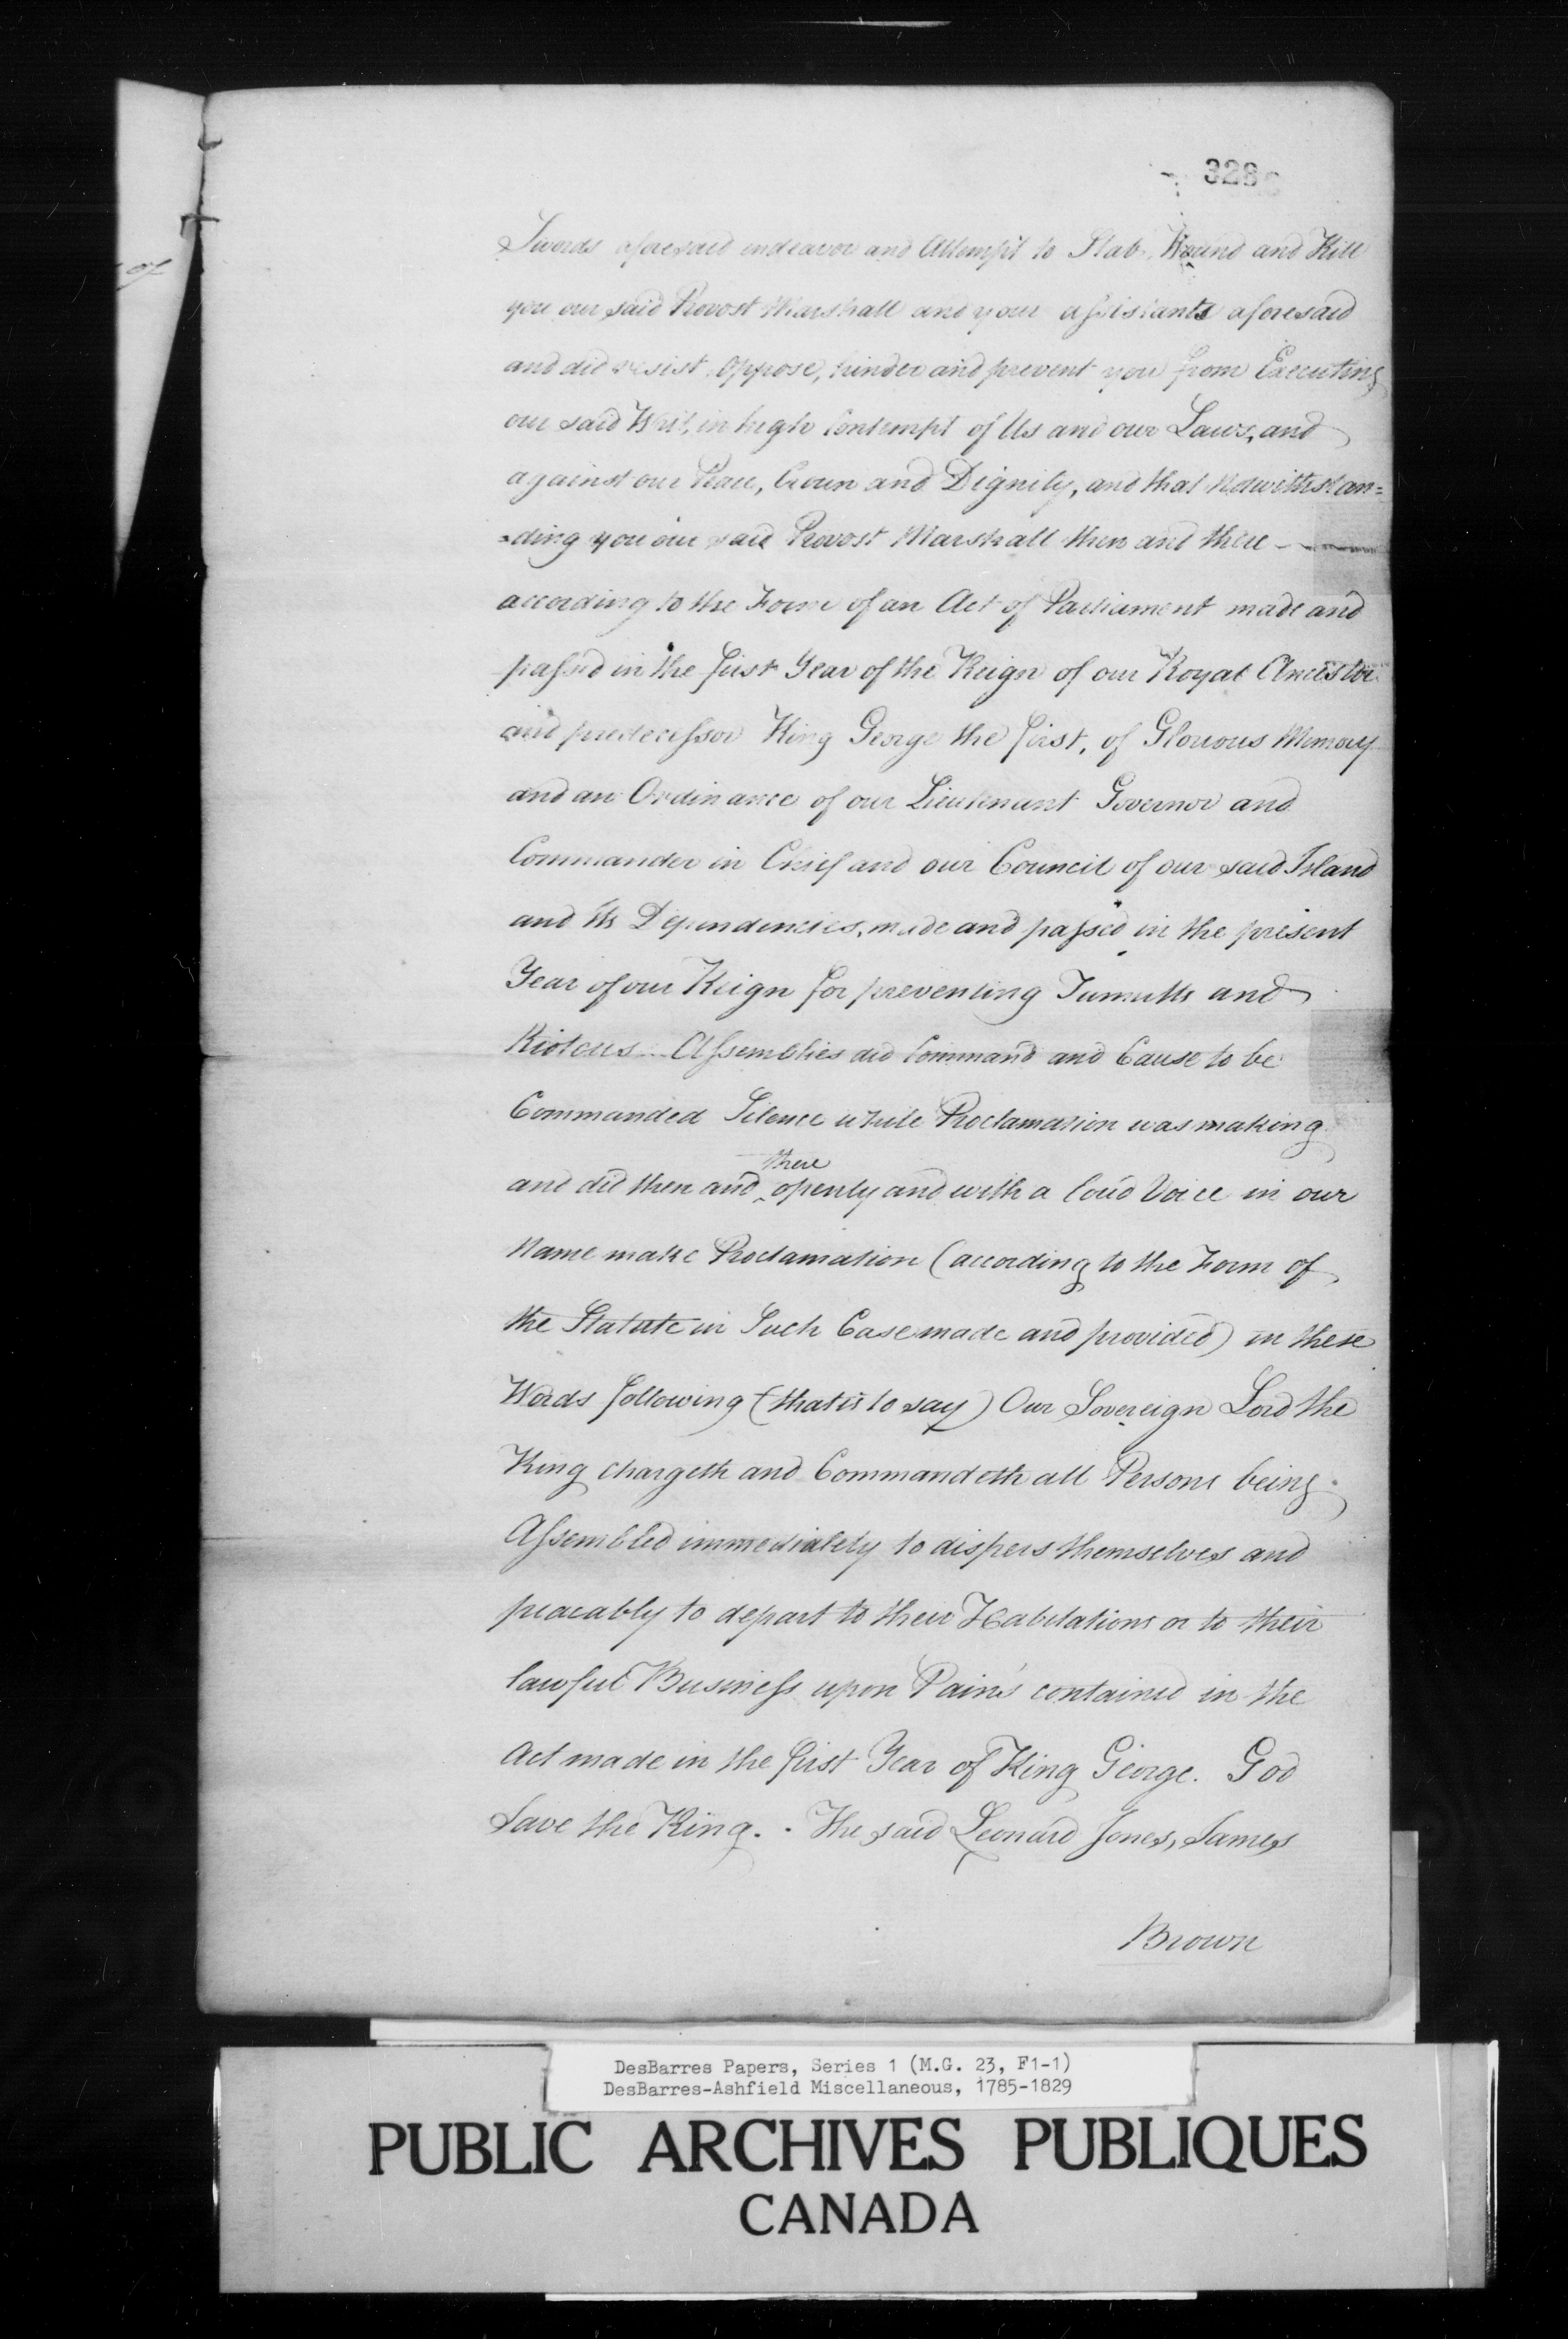 328
of
Swords aforesaid endeavor and Attempt to Stab, Wound and Kill
you our said Provost Marshall and your assistants aforesaid
and did resist, Oppose, hinder and prevent you from Executing
our said Writ, in high Contempt of Us and our Laws, and
against our Peace, Crown and Dignity, and that Notwithstan=
=ding you our said Provost Marshall then and there
according to the Form of an Act of Parliament made and
passed in the first Year of the Reign of our Royal Ancestor
and predecessor King George the first, of Glorious Memory
and an Ordinance of our Lieutenant Governor and
Commander in Chief and our Council of our said Island
and its Dependencies, made and passed in the present
Year of our Reign for preventing Tumults and
Riotous Assemblies did Command and Cause to be
Commanded Silence while Proclamation was making
and did then and there openly and with a loud Voice in our
Name make Proclamation (according to the Form of
the Statute in Such Case made and provided) in these
Words following (that is to say) Our Sovereign Lord the
King chargeth and Commandeth all Persons being
Assembled immediately to dispers themselves and
peacably to depart to their Habitations or to their
lawful Business upon Pains contained in the
Act made in the first Year of King George. God
Save the King. . The said Leonard Jones, James
Brown
DesBarres Papers, Series 1 (M.G. 23, F1-1)
DesBarres-Ashfield Miscellaneous, 1785-1829
PUBLIC ARCHIVES PUBLIQUES
CANADA